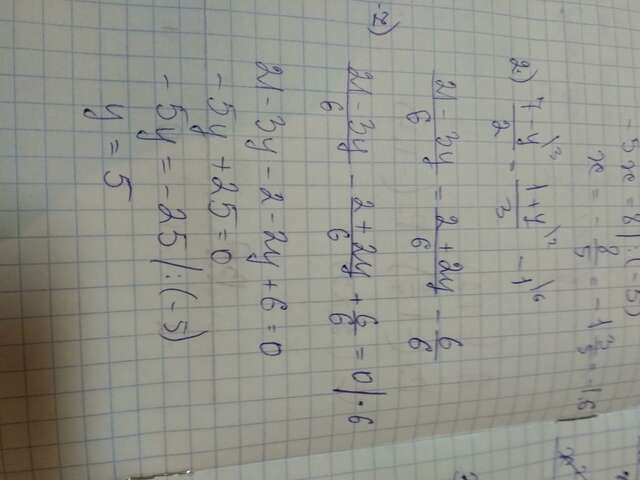 -5x = 8 | : (-5)
x = - 8/5 = -1 3/5 = -1,6)
2) 7 - y\3 / 2 = 1 + y\2 / 3 - 1\6
21 - 3y / 6 = 2 + 2y / 6 - 6/6
21 - 3y / 6 - 2 + 2y / 6 + 6/6 = 0 | · 6
21 - 3y - 2 - 2y + 6 = 0
-5y + 25 = 0
-5y = -25 | : (-5)
y = 5
-2)